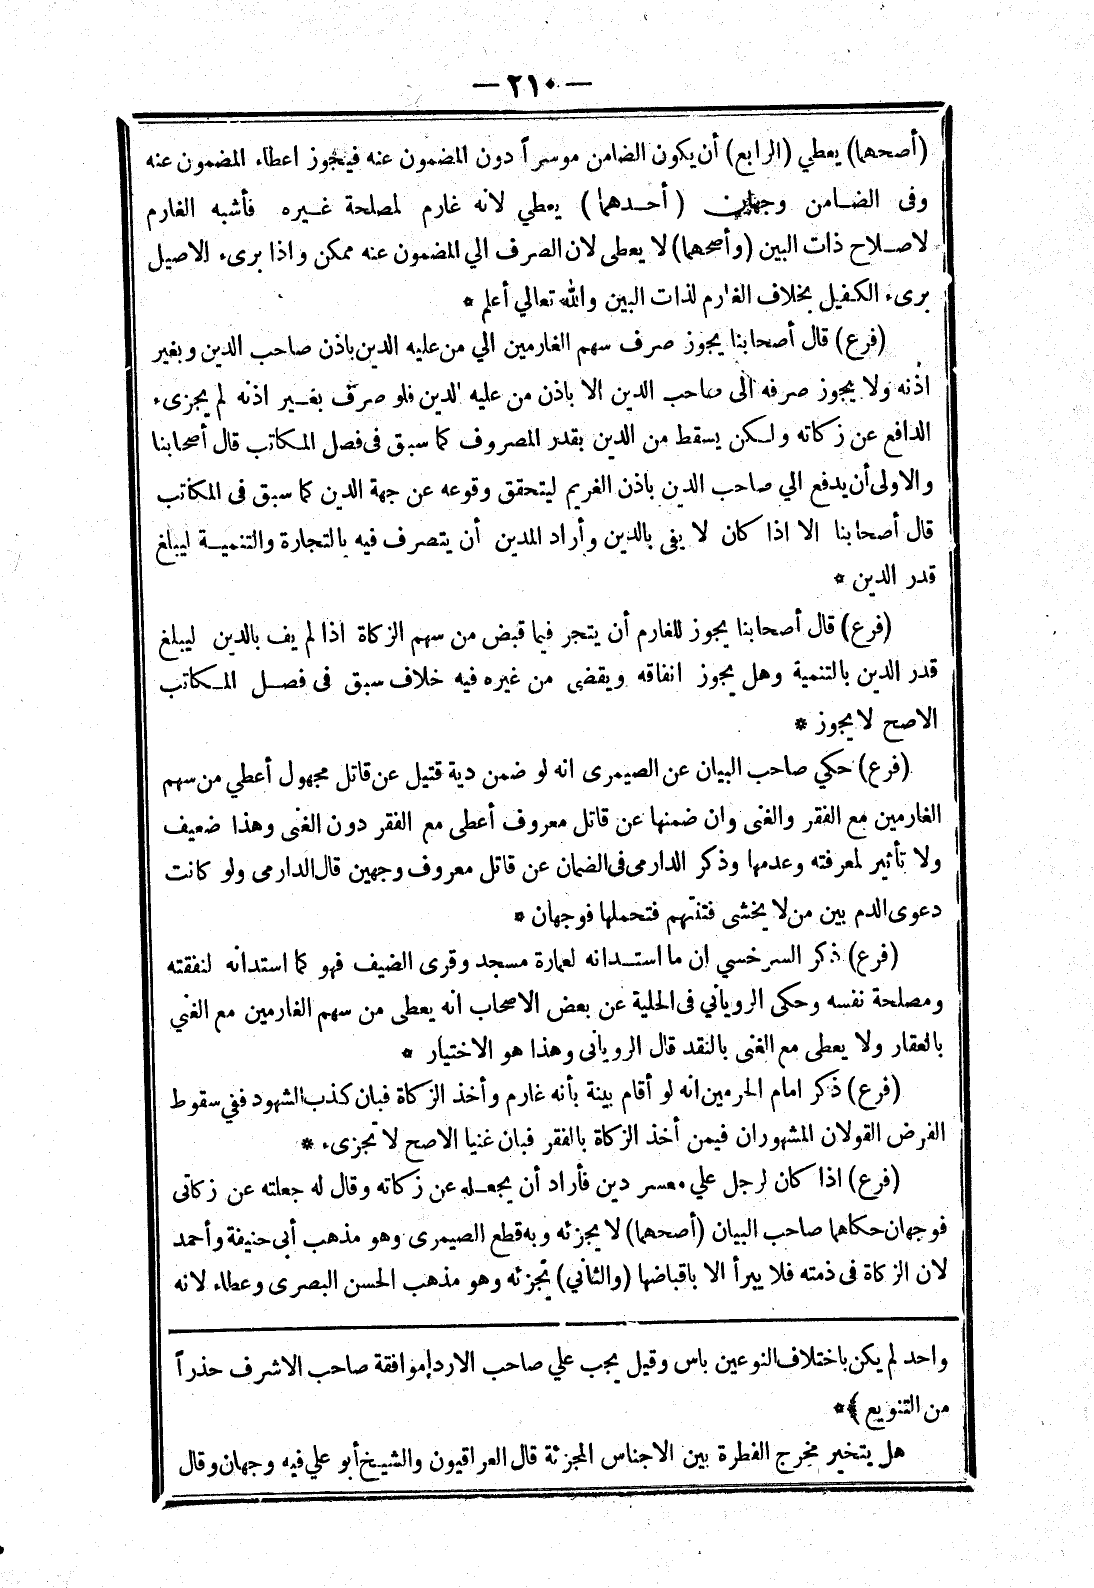 — ٢١٠ —
(أصحهما) يعطي (الرابع) أن يكون الضامن موسراً دون المضمون عنه فيجوز اعطاء المضمون عنه
وفى الضـامن وجهان (أحـدهما) يعطي لانه غارم لمصلحة غـيره فأشبه الغارم
لاصـلاح ذات البين (وأصحهما) لا يعطى لان الصرف الي المضمون عنه ممكن واذا برىء الاصيل
برىء الكفيل بخلاف الغارم لذات البين والله تعالي أعلم *
(فرع) قال أصحابنا يجوز صرف سهم الغارمين الي من عليه الدين باذن صاحب الدين وبغير
اذنه ولا يجوز صرفه الى صاحب الدين الا باذن من عليه الدين فلو صرف بغـير اذنه لم يجزىء
الدافع عن زكاته ولـكن يسقط من الدين بقدر المصروف كما سبق فى فصل المـكاتب قال أصحابنا
والاولى أن يدفع الي صاحب الدين باذن الغريم ليتحقق وقوعه عن جهة الدين كما سبق فى المكاتب
قال أصحابنا الا اذا كان لا يفى بالدين وأراد المدين أن يتصرف فيه بالتجارة والتنميـة ليبلغ
قدر الدين *
(فرع) قال أصحابنا يجوز للغارم أن يتجر فيما قبض من سهم الزكاة اذا لم يف بالدين ليبلغ
قدر الدين بالتنمية وهل يجوز انفاقه ويقضى من غيره فيه خلاف سبق فى فصـل المـكاتب
الاصح لا يجوز *
(فرع) حكي صاحب البيان عن الصيمرى انه لو ضمن دية قتيل عن قاتل مجهول أعطي من سهم
الغارمين مع الفقر والغنى وان ضمنها عن قاتل معروف أعطى مع الفقر دون الغنى وهذا ضعيف
ولا تأثير لمعرفته وعدمها وذكر الدارمى فى الضمان عن قاتل معروف وجهين قال الدارمى ولو كانت
دعوى الدم بين من لا يخشى فتنتهم فتحملها فوجهان *
(فرع) ذكر السرخسي ان ما استـدانه لعمارة مسجد وقرى الضيف فهو كما استدانه لنفقته
ومصلحة نفسه وحكى الروياني فى الحلية عن بعض الاصحاب انه يعطى من سهم الغارمين مع الغني
بالعقار ولا يعطى مع الغنى بالنقد قال الرويانى وهذا هو الاختيار *
(فرع) ذكر امام الحرمين انه لو أقام بينة بأنه غارم وأخذ الزكاة فبان كذب الشهود ففي سقوط
الفرض القولان المشهوران فيمن أخذ الزكاة بالفقر فبان غنيا الاصح لا تجزىء *
(فرع) اذا كان لرجل علي معسر دين فأراد أن يجعـله عن زكاته وقال له جعلته عن زكاتى
فوجهان حكاهما صاحب البيان (أصحهما) لا يجزئه وبه قطع الصيمرى وهو مذهب أبى حنيفة وأحمد
لان الزكاة فى ذمته فلا يبرأ الا باقباضها (والثاني) تجزئه وهو مذهب الحسن البصرى وعطاء لانه
واحد لم يكن باختلاف النوعين باس وقيل يجب علي صاحب الاردإ موافقة صاحب الاشرف حذراً
من التنويع ﴾*
هل يتخير مخرج الفطرة بين الاجناس المجزئة قال العراقيون والشيخ أبو علي فيه وجهان وقال